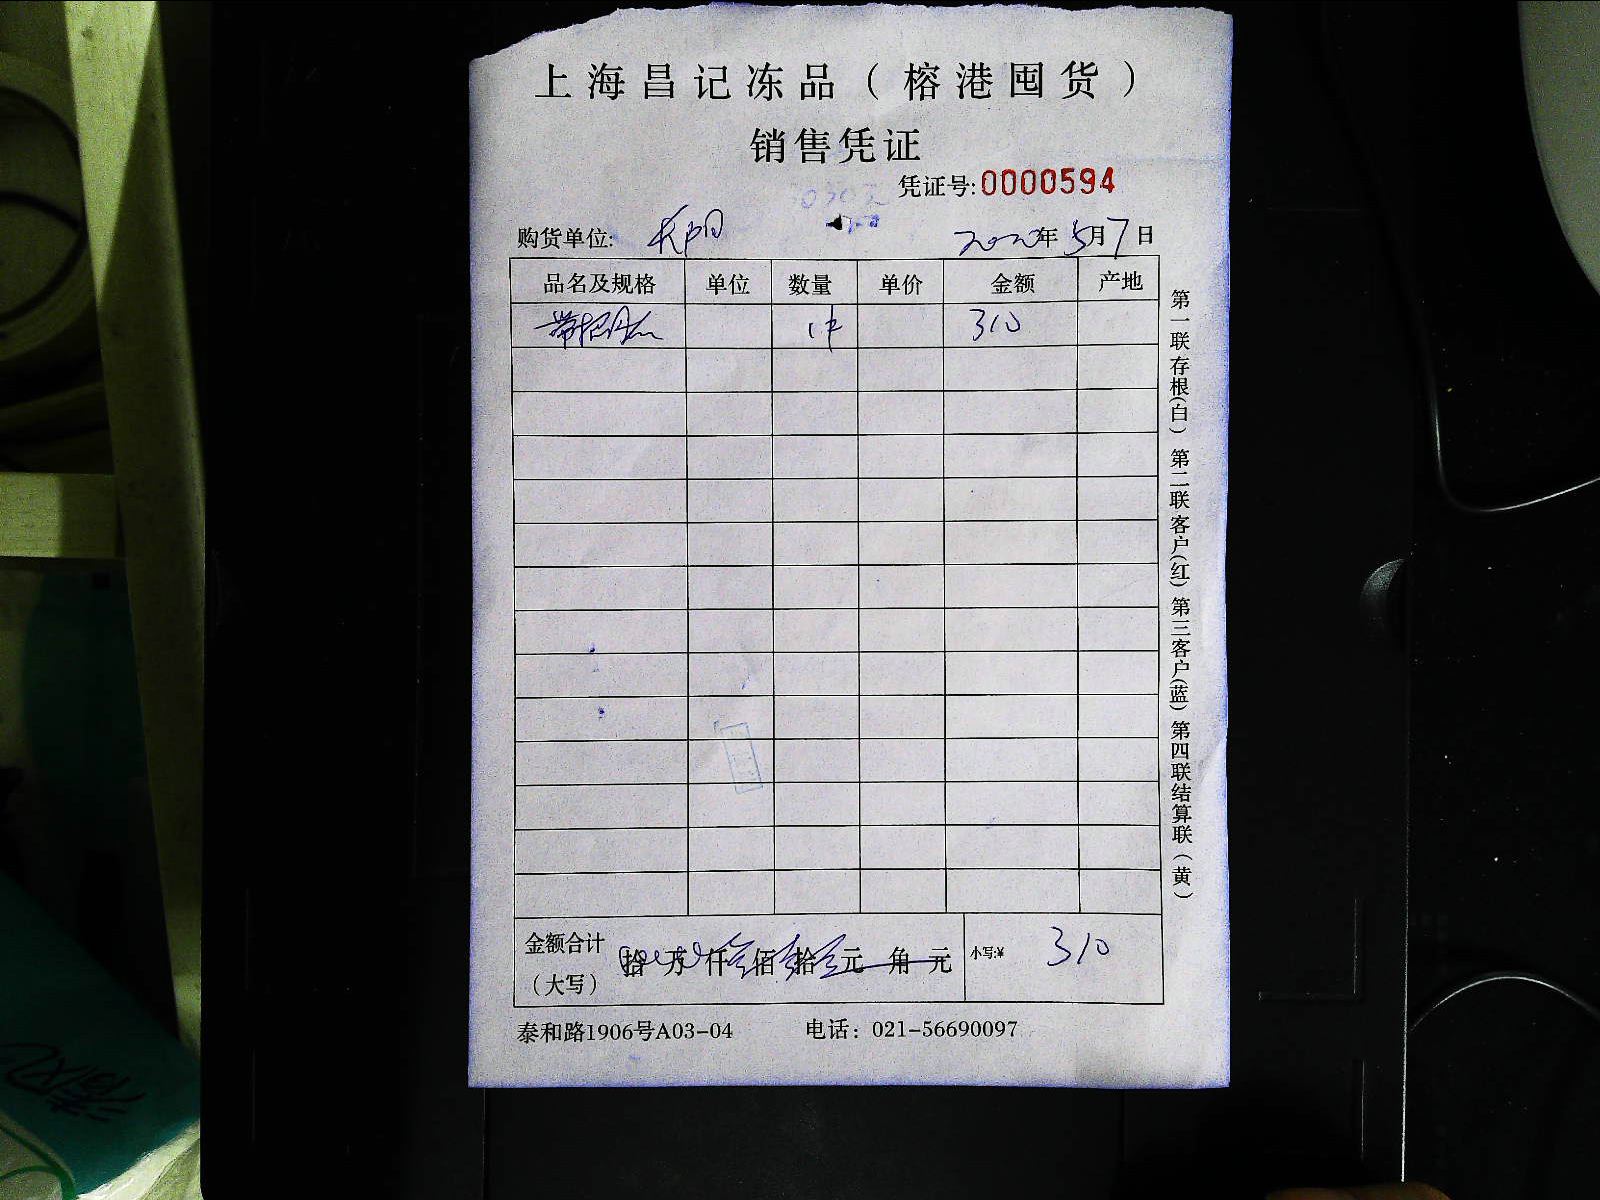 上海昌记冻品（榕港囤货）
销售凭证
凭证号:0000594
购货单位: 2020年5月7日
品名及规格 单位 数量 单价 金额 产地
1件 310
金额合计（大写） 拾 万 仟 佰 拾 元 角 元 小写:¥ 310
泰和路1906号A03-04 电话：021-56690097
第一联存根(白) 第二联客户(红) 第三客户(蓝) 第四联结算联（黄）